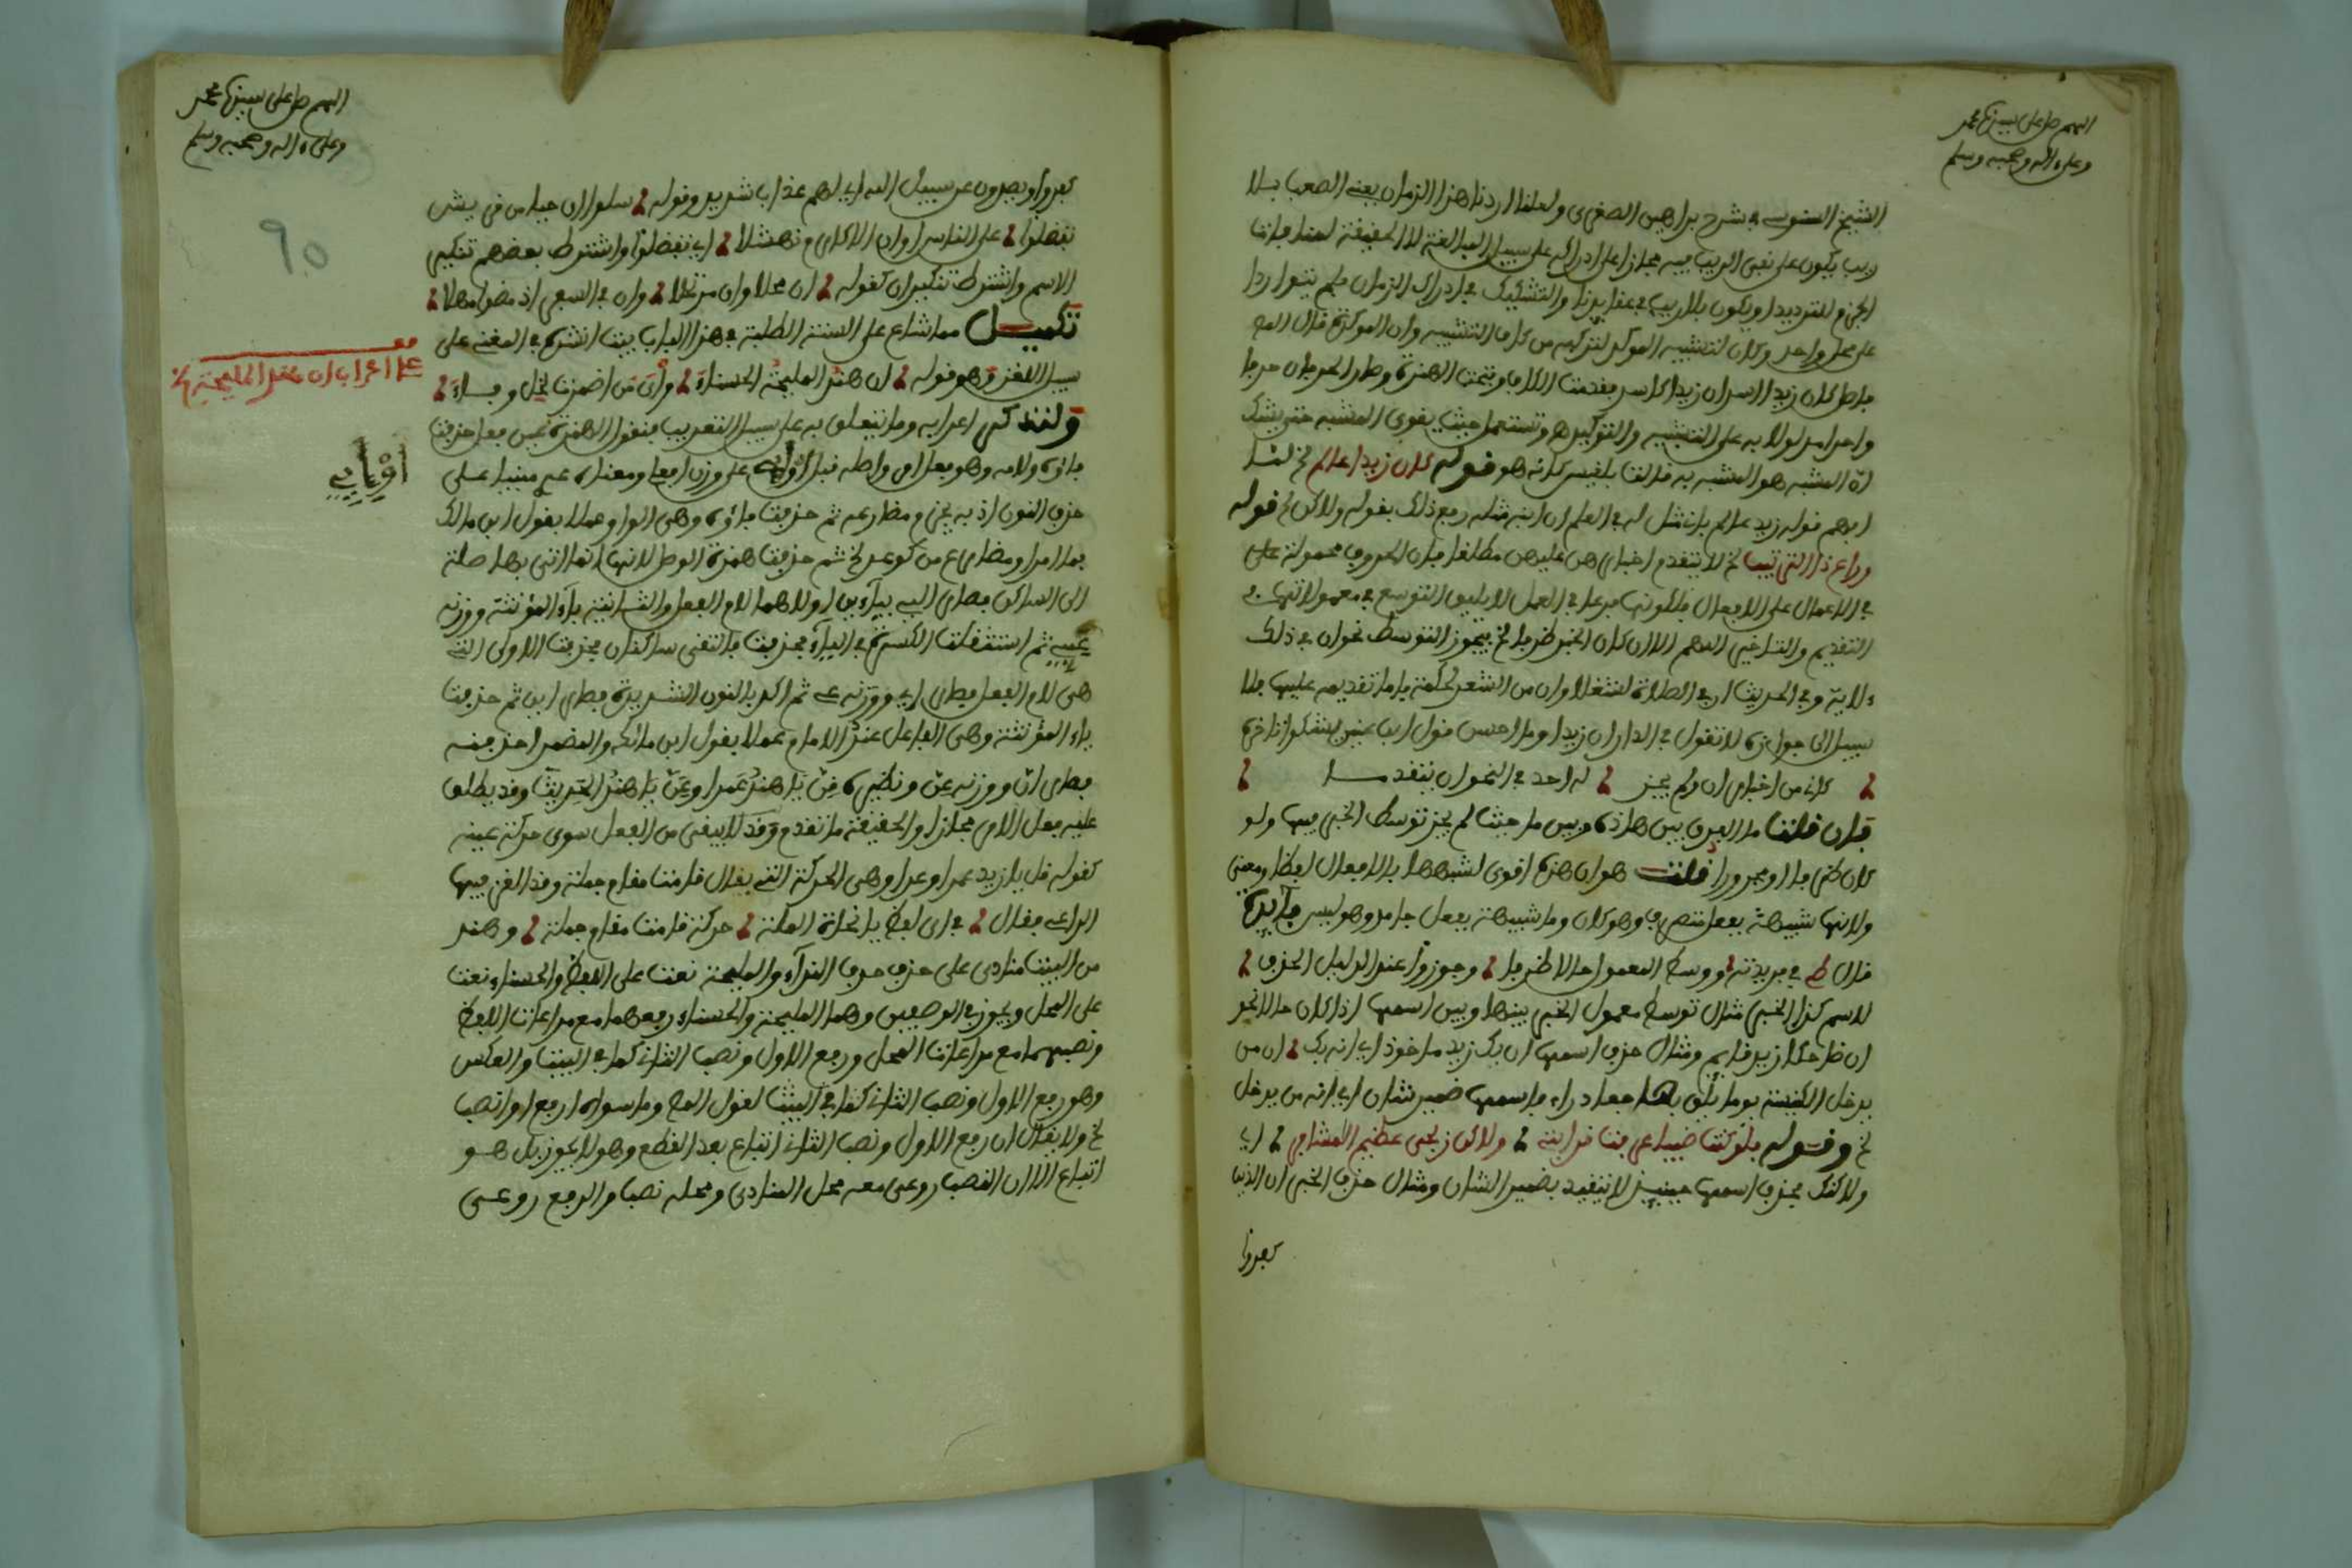 اللهم صل على سيدنا محمد
وعلى ءاله وصحبه وسلم
الشيخ السنوسي في شرح براهين الصغرى ولعلنا اردنا هذا الزمان يعني الصعب بلا
ريب يكون على نفي الريب فيه مجازا على ادراكه على سبيل المبالغة لا الحقيقة
الجزم للترديد او يكون بلا ريب في عقايدنا والتشكيك في ادراك الزمان فلم يتواردا
على محل واحد وكان لتشبيه الموكد لتركبه من كاف التشبيه وان الموكدة قال
فاصل كان زيدا اسد ان زيدا كاسد فقدمت الكاف وفتحت الهمزة وصار الحرفان حرفا
واحدا مدلولا به على التشبيه والتوكيد وتستعمل حيث يقوى المشبه حتى يشك
ان المشبه هو المشبه به قالت بلقيس كانه هو قوله كان زيدا عالم الخ لما
اوهم قوله زيد عالم باني مثل له في العلم ان ابنه مثله رفع ذلك بقوله ولاكن الخ قوله
وراع ذا الترتيب الخ لا يتقدم اخبارهن عليهن مطلقا فان الحروف محمولة على
في الاعمال على الافعال فلكونها فرعا في العمل لا يليق التوسع في معمولاتها في
التقديم والتاخير اللهم الا ان كان الخبر ظرفا الخ فيجوز التوسط نحو ان في ذلك
ءلاية وفي الحديث ان في الصلاة لشغلا وان من الشعر لحكمة فاما تقديمه عليها فلا
سبيل الى جوازه لا تقول في الدار ان زيدا وما احسن قول ابن عنين يشكو تاخره
كاني من اخبار ان ولم يجز له احد في النحو ان يتقدما
فان قلت ما الفرق بين هاذه وبين ما حيث لم يجز توسط الخبر فيها ولو
كان ظرفا او مجرورا قلت هو ان هذه اقوى لشبهها بالافعال لفظا ومعنى
ولانها شبيهة بفعل متصرف وهو كان وما شبيهة بفعل جامد وهو ليس فائدة
قال في فريدته ووسط المعمول حالا ظرفا وجوزوا عند الدليل الحذف
للاسم كذا الخبر مثال توسط معمول الخبر بينها وبين اسمها اذا كان حالا نحو
ان ضاحكا زيد قايم ومثال حذف اسمها ان بك زيد ماخوذ اي انه بك ان من
يدخل الكنيسة يوما يلق فيها جئاذرا فاسمها ضمير شان اي انه من يدخل
الخ وقوله فلو كنت ضبيا عرفت قرابتي ولاكن زنجي عظيم المشافر اي
ولاكنك بحذف اسمها حينئذ لا يتقيد بضمير الشان ومثال حذف الخبر ان الذين
كفروا
اللهم صل على سيدنا محمد
وعلى ءاله وصحبه وسلم
90
كفروا ويصدون عن سبيل الله اي لهم عذاب شديد وقوله سلوا ان حيا من قريش
تفضلوا على الناس او ان الاكارم نهشلا اي تفضلوا واشترط بعضهم تنكير
الاسم واشترط تنكير ان كقوله ان محلا وان مرتحلا وان في السفر اذ مضوا مهلا
تكميل مما شاع على السنة الطلبة في هذا الباب بيت انشده في المغني على
سبيل اللغز وهو قوله ان هند المليحة الحسناء وأي من اضمرت لخل وفاء
ولنذكر اعرابه وما يتعلق به على سبيل التقريب فنقول الهمزة
فاؤه ولامه وهو فعل امر واصله قبل اوإيي على وزن افعلي ومعناه عدي مبنيا على
حذف النون اذ به يجزم مضارعه ثم حذفت فاؤه وهي الواو عملا بقول ابن مالك
فا امر او مضارع من كوعد الخ ثم حذفت همزة الوصل لانها انما اتي بها صلة
الى الساكن فصار ايي بياءين اولاهما لام الفعل والثانية ياء المؤنثة ووزنه
عيي ثم استثقلت الكسرة في الياء فحذفت فالتقى ساكنان فحذفت الاولى التي
هي لام الفعل فصار اي ووزنه عي ثم اكد بالنون الشديدة فصار اين ثم حذفت
ياء المؤنثة وهي الفاعل عند الامام عملا بقول ابن مالك والمضمر احذفنه
فصار ان ووزنه عن ونظيره قن يا هند عمرا وعن يا هند الحديث وقد يطلق
عليه فعل الامر مجازا والحقيقة ما تقدم وقد لا يبقى من الفعل سوى حركة عينه
كقوله قل يا زيد عمرا وهي الحركة التي يقال قامت مقام جملة وقد الغز فيها
الراعي فقال في اي لفظ يا نحاة الملة حركة قامت مقام جملة وهند
من البيت منادى على حذف حرف النداء والمليحة نعت على اللفظ والحسناء نعت
على المحل ويجوز في الوصفين وهما المليحة والحسناء رفعهما مع مراعاة اللفظ
ونصبهما مع مراعاة المحل ورفع الاول ونصب الثاني كما في البيت والعكس
وهو رفع الاول ونصب الثاني كما في البيت لقول المص وما سواه ارفع او انصب
الخ ولا يقال ان رفع الاول ونصب الثاني اتباع بعد القطع وهو لا يجوز بل هو
اتباع الا ان النصب روعي معه محل المنادى ومحله نصب والرفع روعي
قف
على اعراب ان هند المليحة الخ
اوإيي